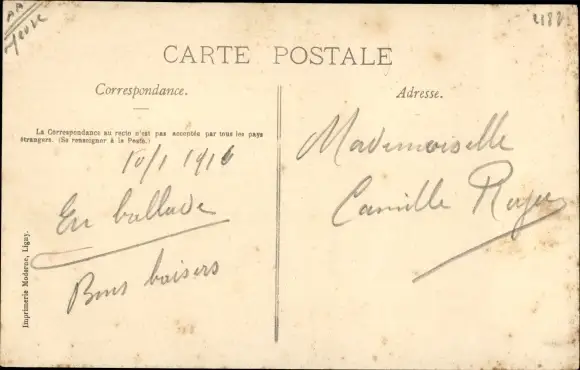 Meuse
CARTE POSTALE
Correspondance.
La Correspondance au recto n'est pas acceptée par tous les pays
étrangers. (Se renseigner à la Poste.)
10/1 1916
En ballade
Bons baisers
Imprimerie Moderne, Ligny.
Adresse.
Mademoiselle
Camille